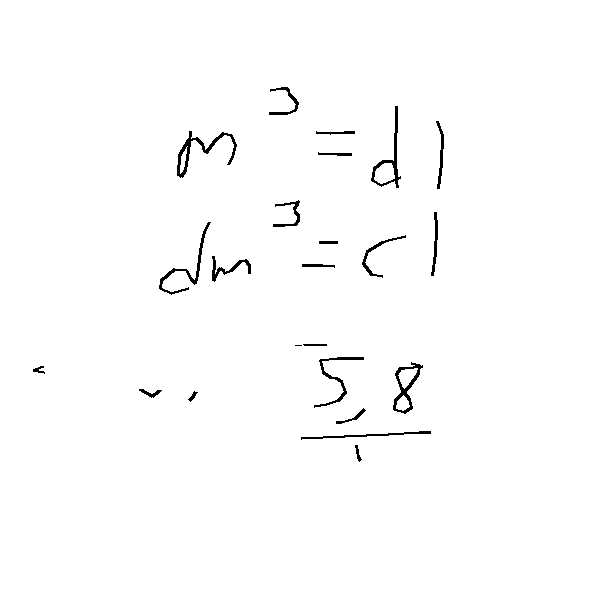 m³ = dl
dm³ = cl
5,8